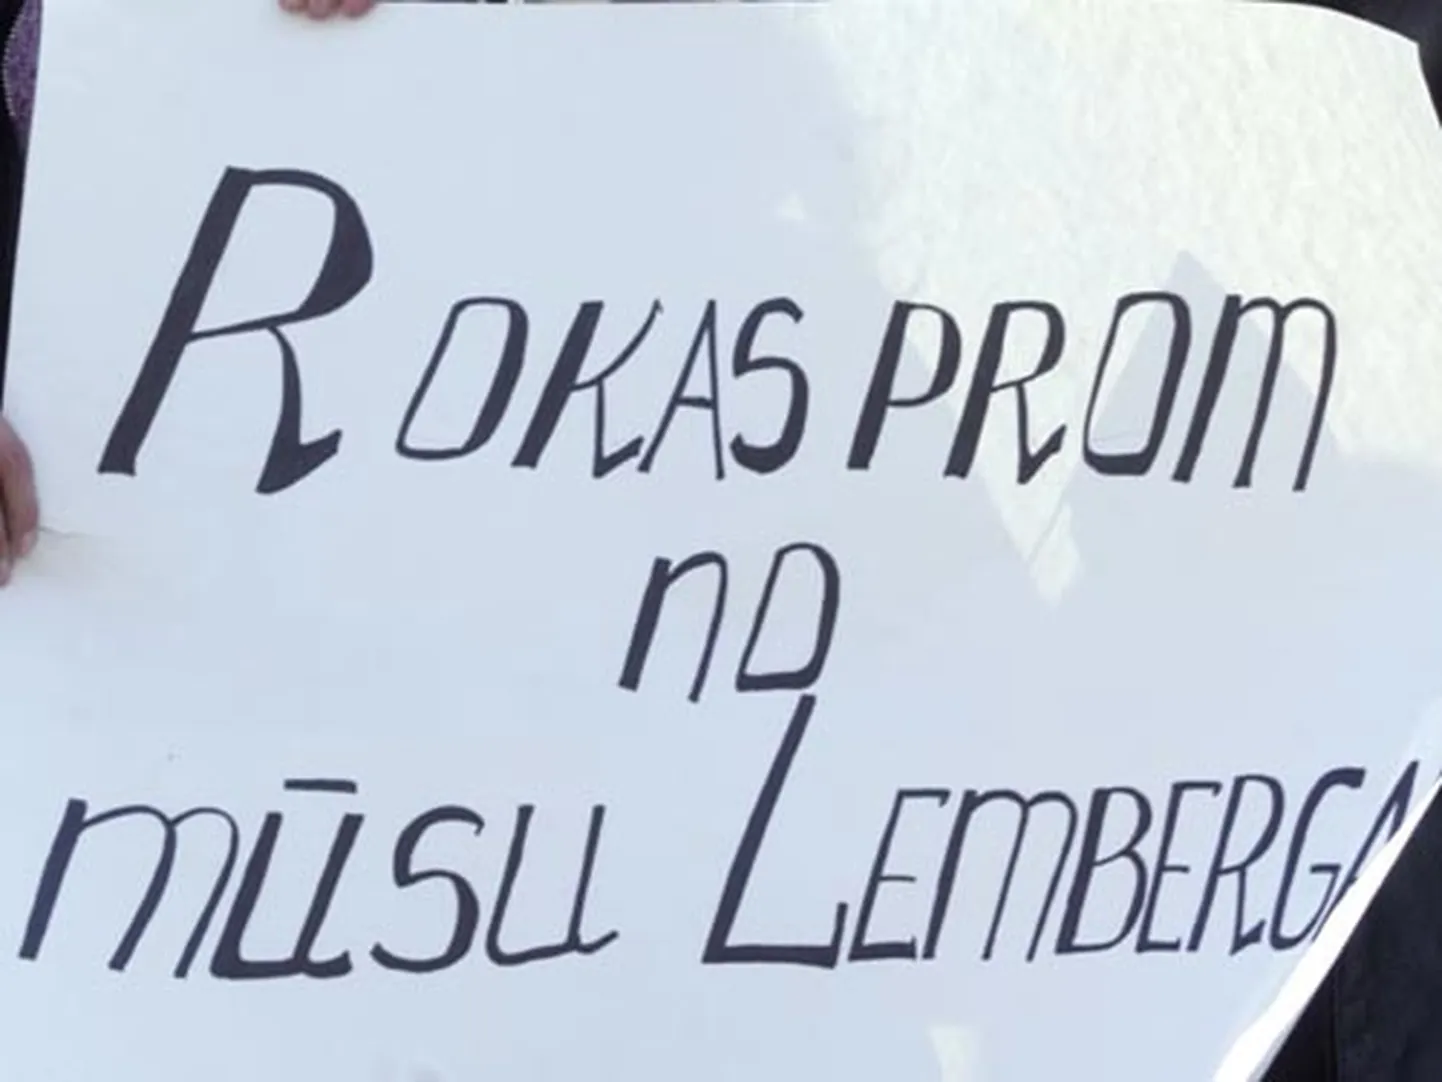 ROKAS PROM
no
mūsu LEMBERGA